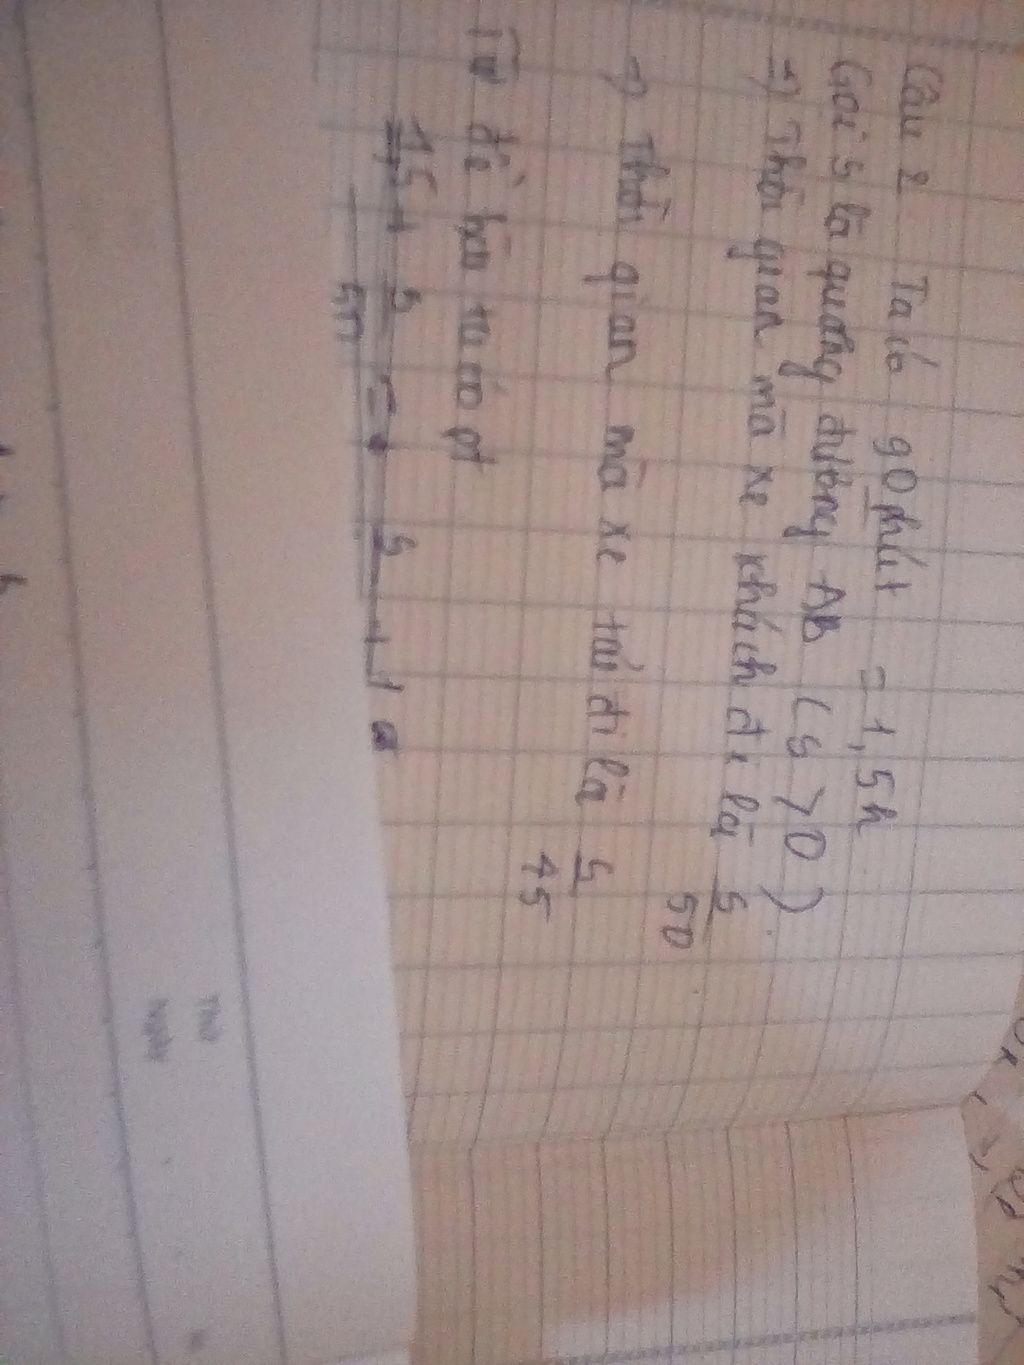 Câu 2 Ta có 90 phút = 1,5h
Gọi s là quãng đường AB (s > 0)
=> Thời gian mà xe khách đi là s/50
=> Thời gian mà xe tải đi là s/45
Từ đề bài ta có pt
1,5 + s/50 = s